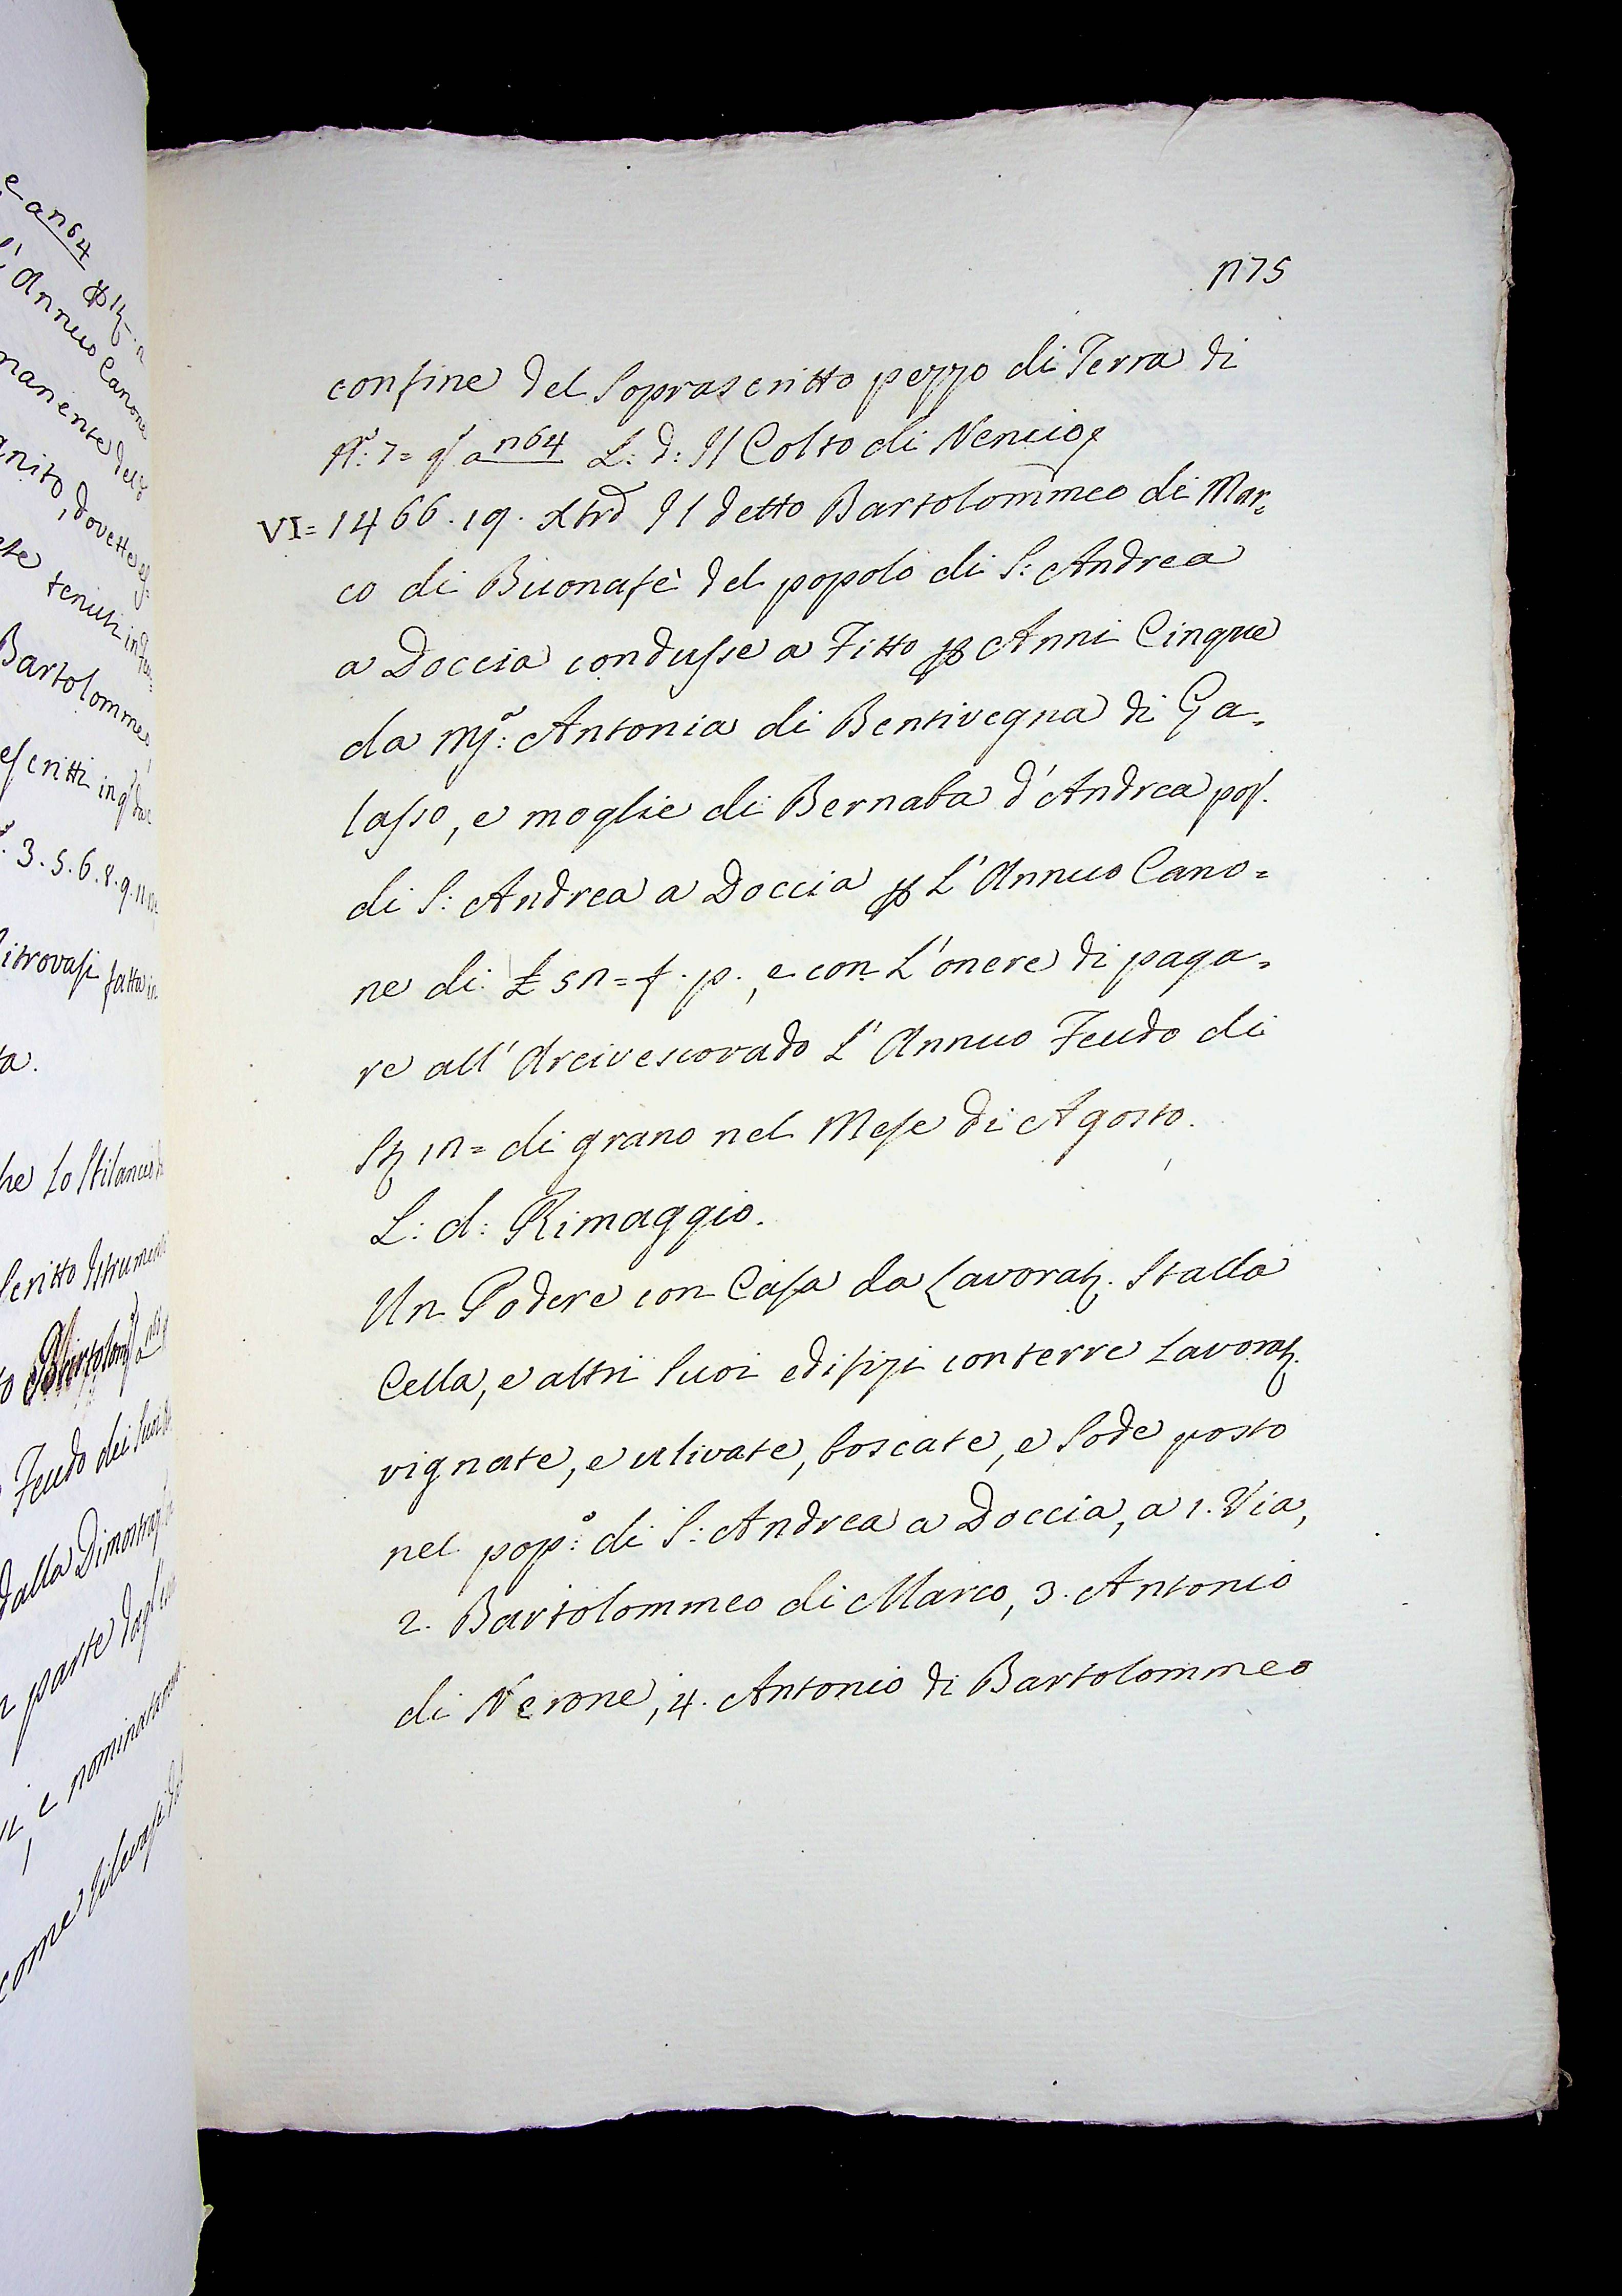 e a n64
l'Annuo Canone
Bartolommeo
3. 5. 6. 8. 9. 11
Feudo dei Suoi
n parte dagl
e nominata
come
n75
confine del Soprascritto pezzo di Terra di
N.º: 7= q.º a n64 L: d: Il Colto di Nencio
VI= 1466. 19. Xbrẽ Il detto Bartolommeo di Mar=
co di Buonafè del popolo di S: Andrea
a Doccia condusse a Fitto ꝑ Anni Cinque
da Mª: Antonia di Bentivegna di Ga=
lasso, e moglie di Bernaba d'Andrea pop.
di S: Andrea a Doccia ꝑ L'Annuo Cano=
ne di £ 5n= f. p., e con L'onere di paga=
re all'Arcivescovado L'Annuo Feudo di
Sta 1n= di grano nel Mese di Agosto.
L: d: Rimaggio.
Un Podere con Casa da Lavorat. Stalla
Cella, e altri Suoi edifizi con terre Lavorat.
vignate, e ulivate, boscate, e Sode posto
nel pop.º: di S: Andrea a Doccia, a 1. Via,
2. Bartolommeo di Marco, 3. Antonio
di Nerone, 4. Antonio di Bartolommeo